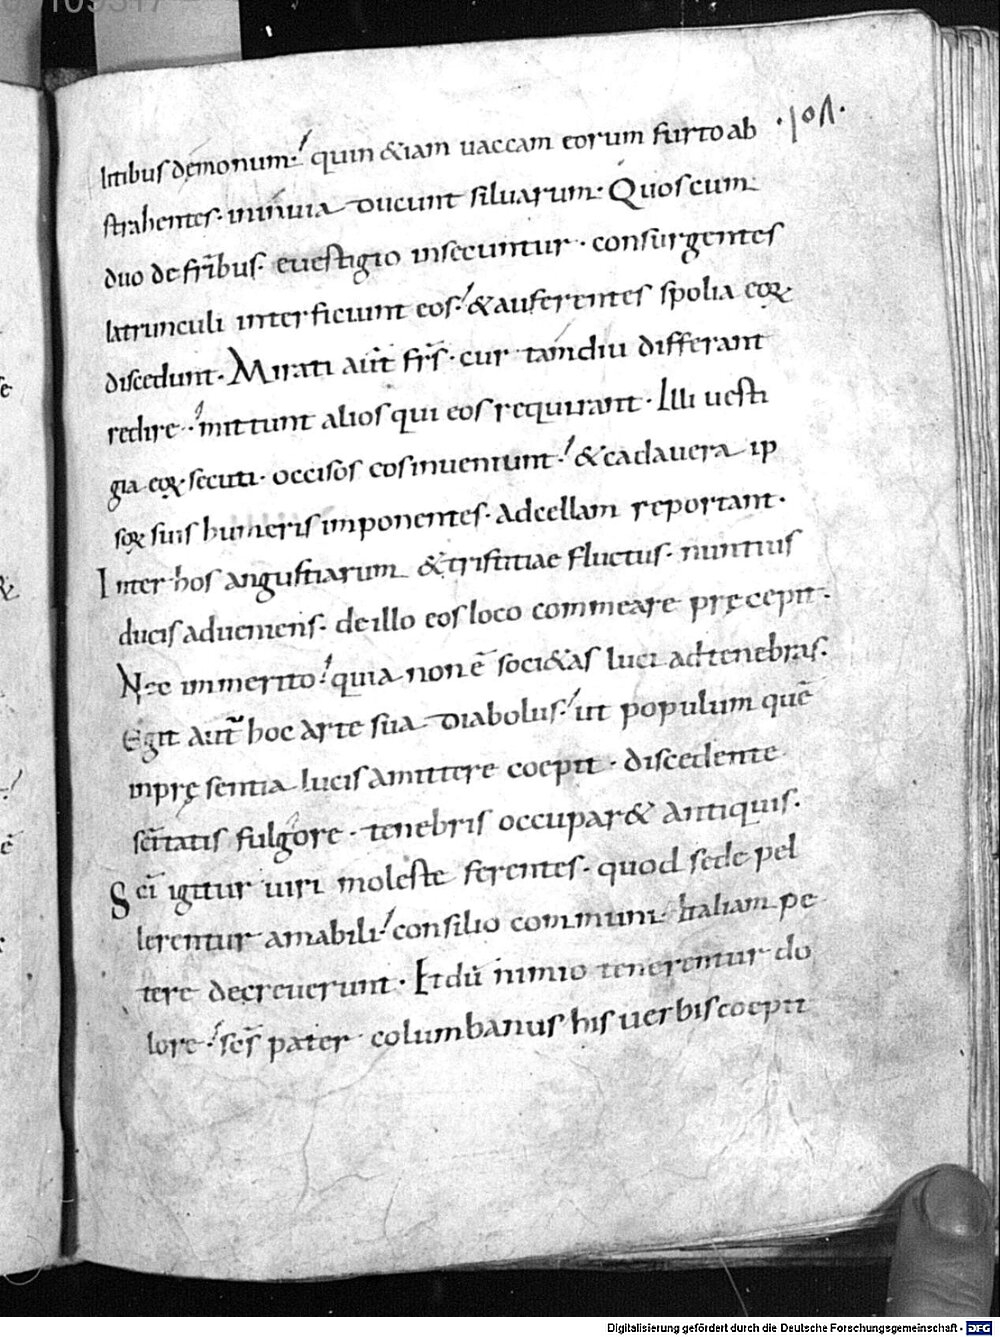 ·107·
litibus dęmonum·' quin &iam uaccam eorum furto ab
strahentes· ininuia ducunt siluarum· Quos cum
duo de fr̄ibus· euestigio insecuntur· consurgentes
latrunculi interficiunt eos·' & auferentes spolia eoꝝ
discedunt· Mirati aūt fr̄s· cur tamdiu differant
redire·' mittunt alios qui eos requirant· Illi uesti
gia eoꝝ secuti· occisos eos inueniunt·' & cadauera ip
soꝝ suis humeris imponentes· ad cellam reportant·
Inter hos angustiarum & tristitiae fluctus· nuntius
ducis adueniens· de illo eos loco commeare pręcepit·
Nec inmerito·' quia non ē soci&as luci ad tenebras·
Egit aūt hoc arte sua diabolus·' ut populum quē
inpręsentia lucis amittere coepit· discedente
sc̄itatis fulgore· tenebris occupar& antiquis·
Sc̄i igitur uiri moleste ferentes· quod sede pel
lerentur amabili·' consilio communi Italiam pe
tere decreuerunt· Et dū nimio tenerentur do
lore·' sc̄s pater columbanus his uerbis coepit
Digitalisierung gefördert durch die Deutsche Forschungsgemeinschaft - DFG